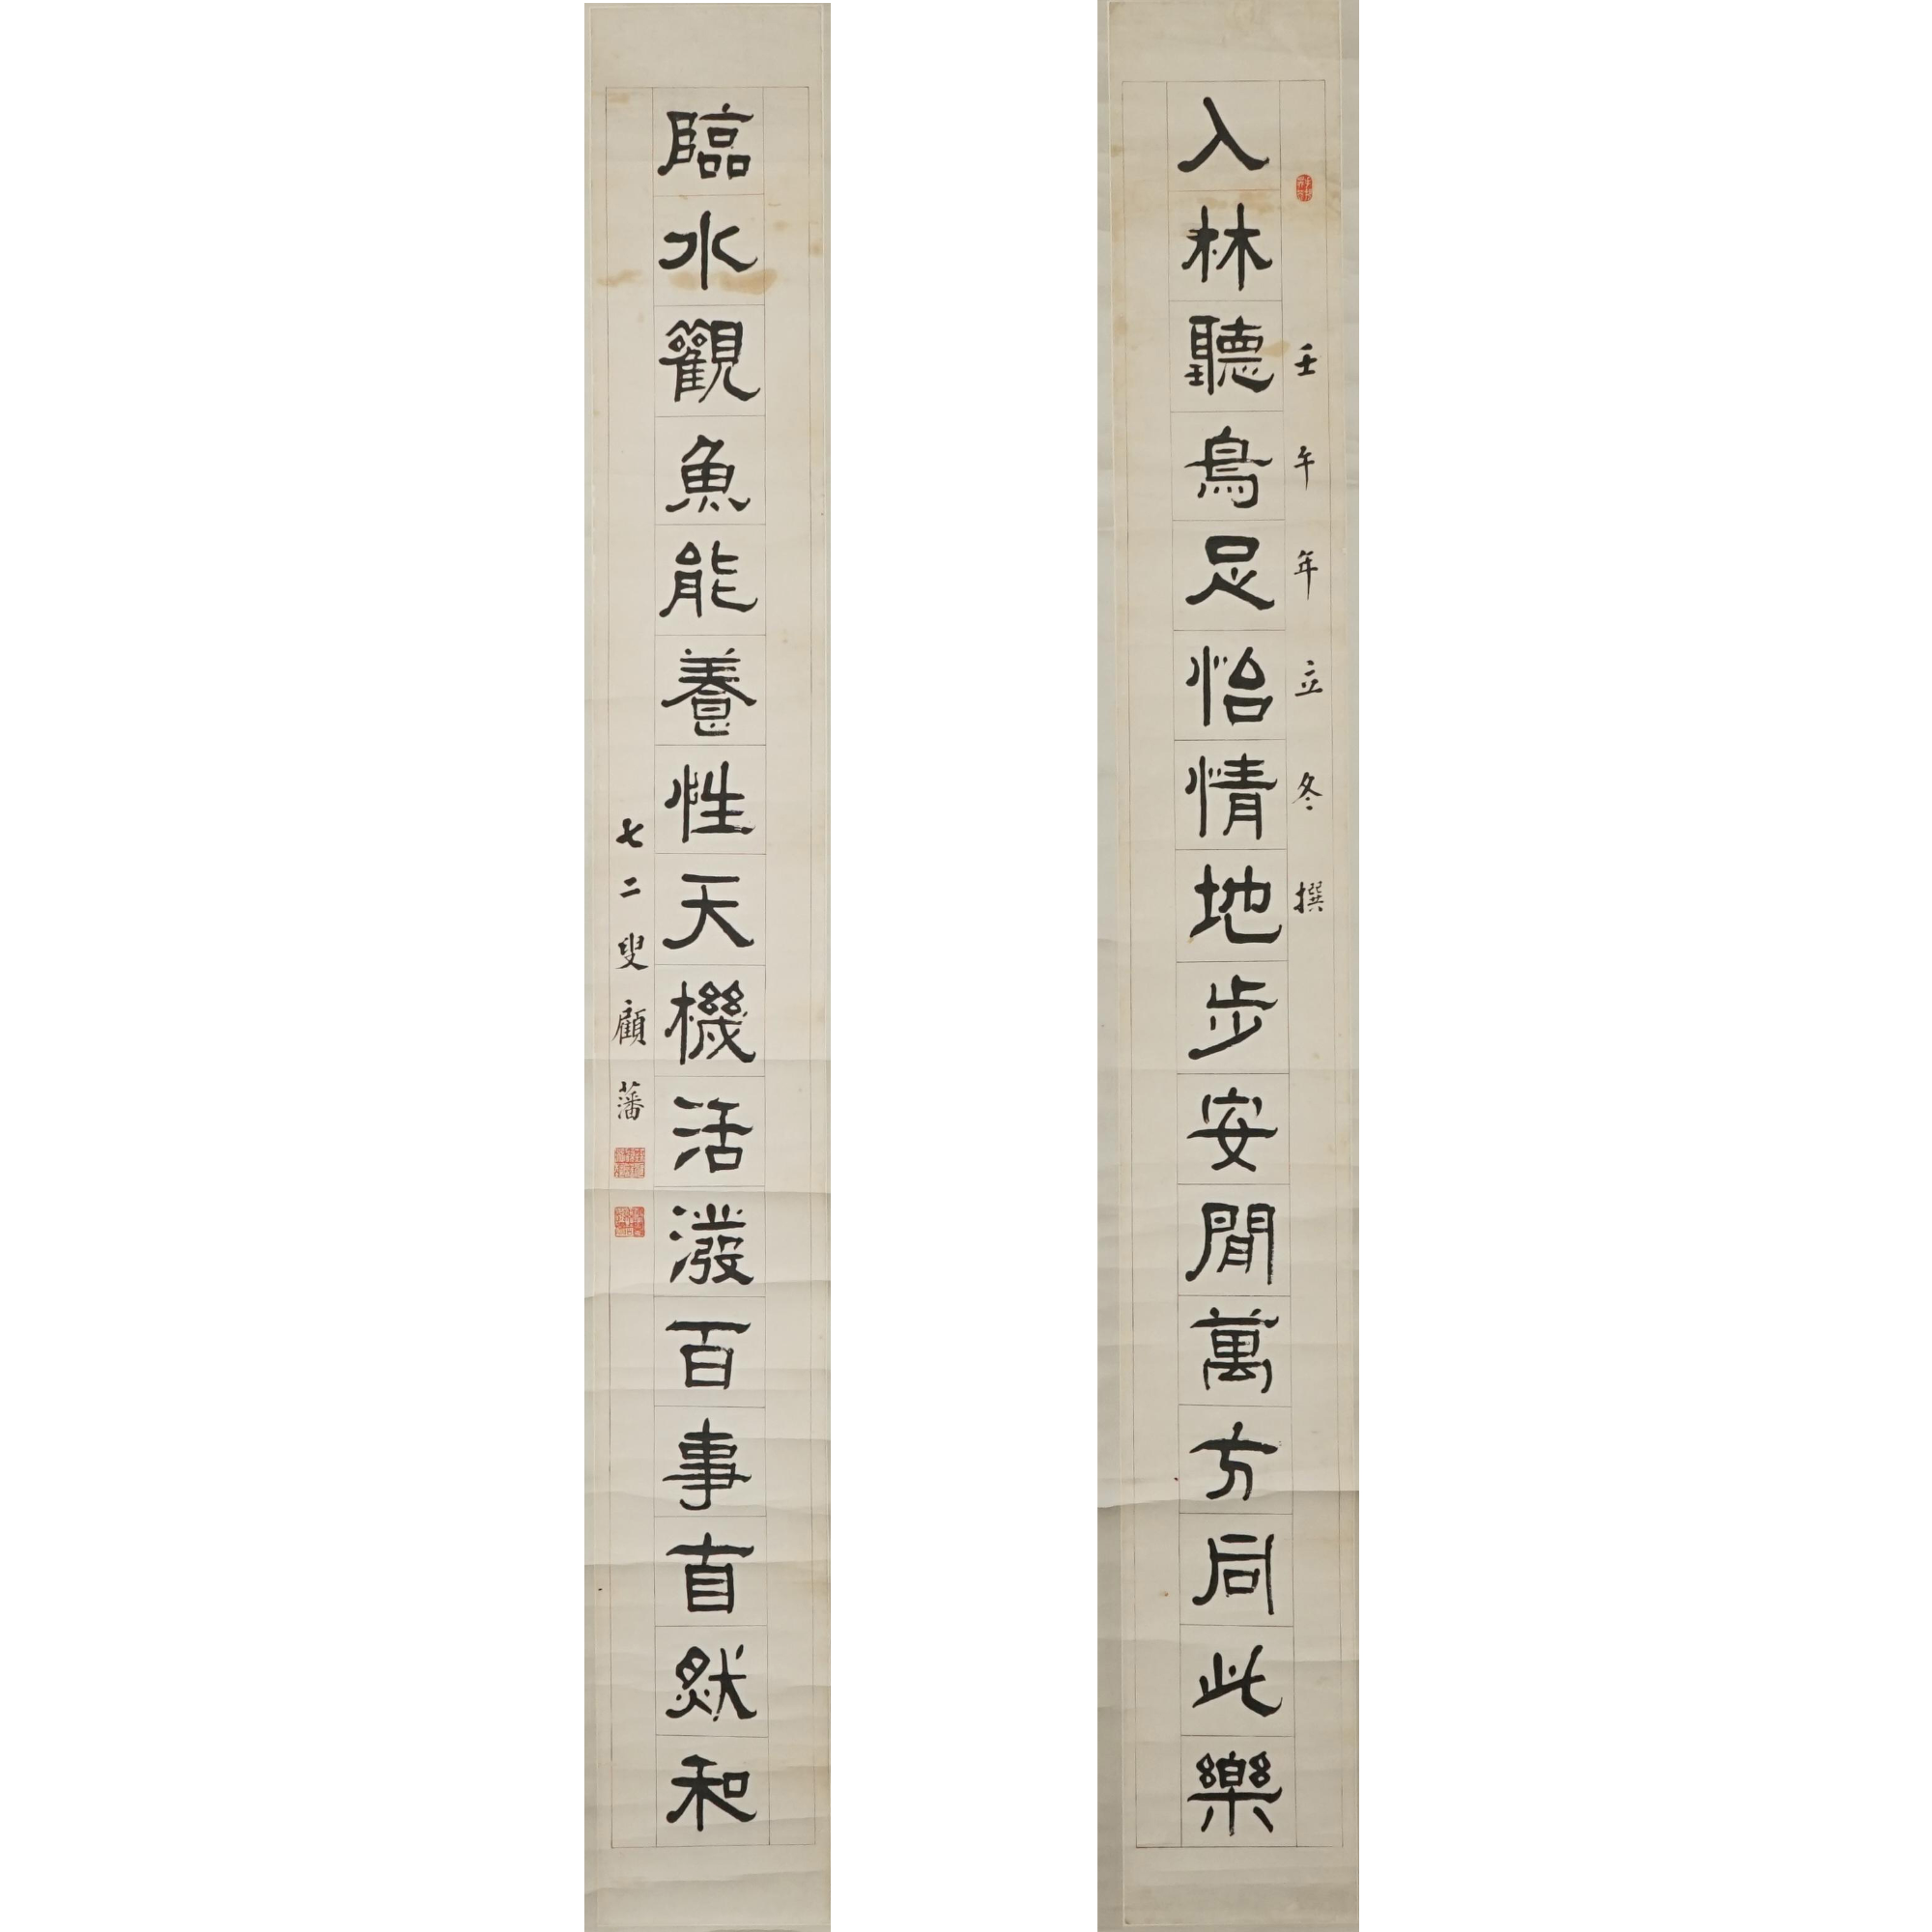 壬午年立冬撰
入林聽鳥足怡情地步安閒萬方同此樂
臨水觀魚能養性天機活潑百事自然和
七二叟顧藩